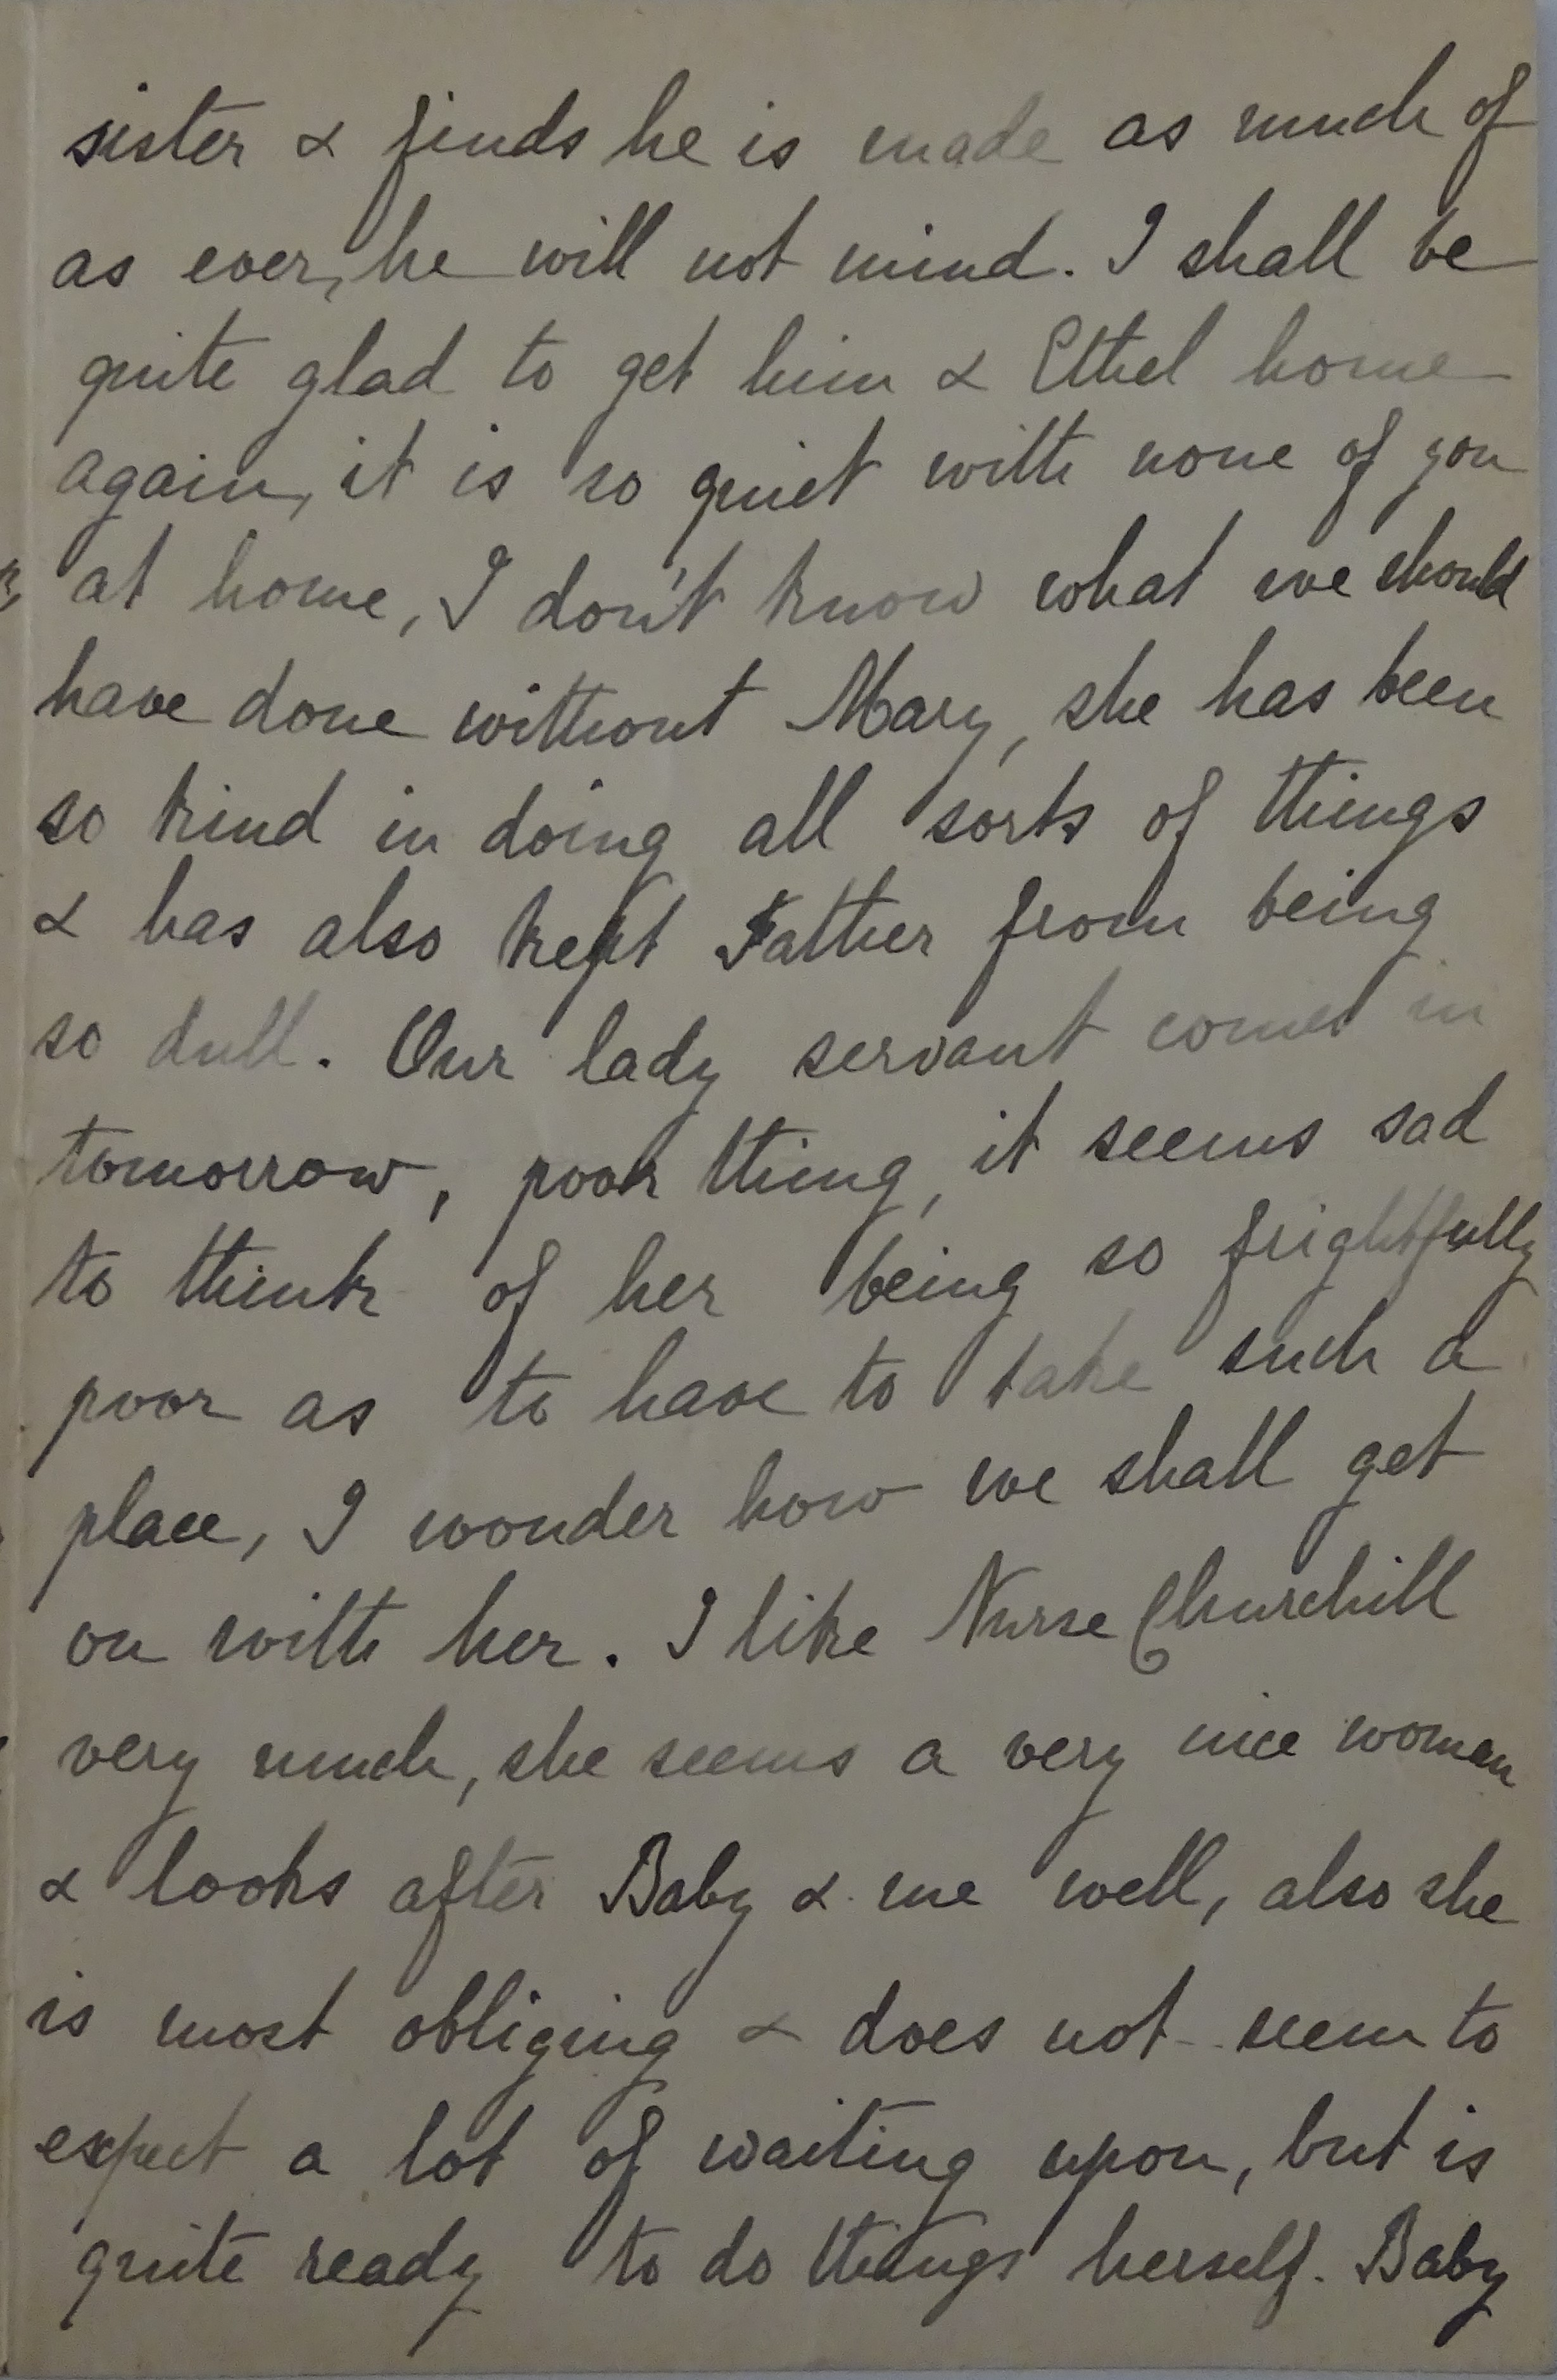 sister & finds he is made as much of
as ever, he will not mind. I shall be
quite glad to get him & Ethel home
again, it is so quiet with none of you
at home, I don't know what we should
have done without Mary, she has been
so kind in doing all sorts of things
& has also kept Father from being
so dull. Our lady servant comes in
tomorrow, poor thing, it seems sad
to think of her being so frightfully
poor as to have to take such a
place, I wonder how we shall get
on with her. I like Nurse Churchill
very much, she seems a very nice woman
& looks after Baby & me well, also she
is most obliging & does not seem to
expect a lot of waiting upon, but is
quite ready to do things herself. Baby